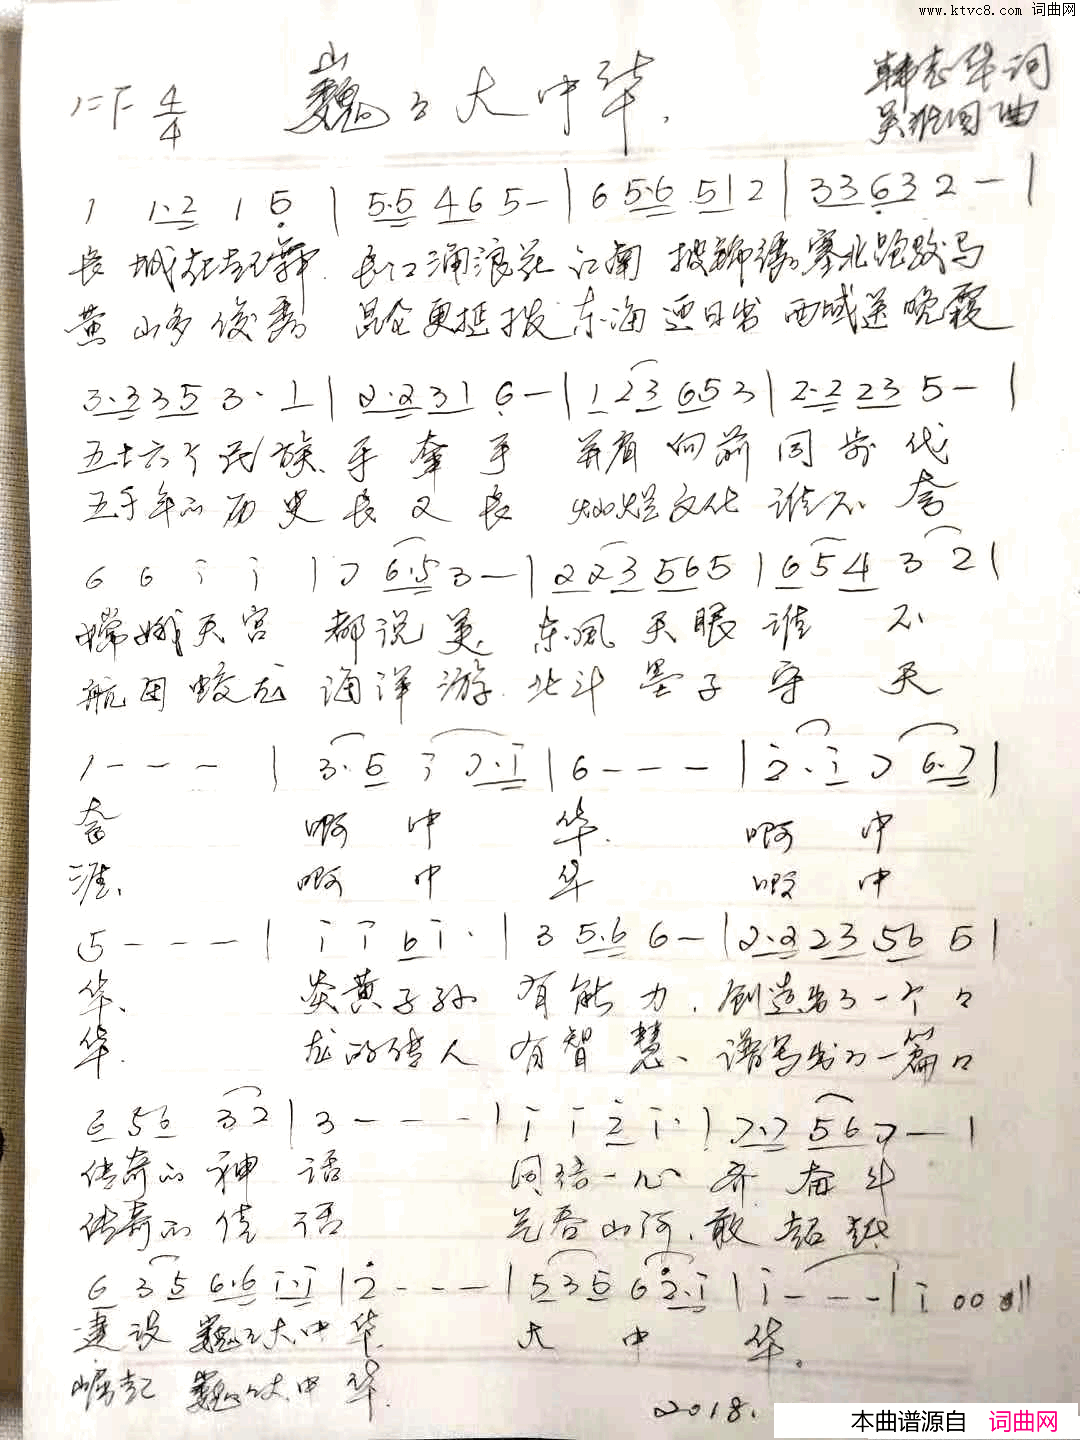 www.ktvc8.com 词曲网
1=F 4/4 巍々大中华 韩志华词
曲
1 1·2 1 5 | 5·5 46 5- | 6 5·6 51 2 | 3363 2 - |
长城在起舞 长江涌浪花 江南披锦绣 塞北跑骏马
黄山多俊秀 昆仑更挺拔 东海迎日出 西域送晚霞
3·335 3· 1 | 2·231 6- | 1 23 653 | 2·2 23 5- |
五十六个民族 手牵手 并肩向前同步伐
五千年的历史长又长 灿烂文化谁不夸
6 6 i i | 7 6·5 3- | 223565 | 654 3 2 |
嫦娥天宫都说美 东风天眼谁不
航母蛟龙海洋游 北斗墨子守天
1 - - - | 3·5 i 7·i | 6 - - - | 2·i 7 6·7 |
夸 啊中华 啊中
涯 啊中华 啊中
5 - - - | i i 6 i· | 3 5·6 6- | 2·2 23 56 5 |
华 炎黄子孙有能力 创造出了一个々
华 龙的传人有智慧 谱写出了一篇々
6 56 32 | 3 - - - | i i 2 i· | 7·7 56 7 - |
传奇的神话 同结一心齐奋斗
传奇的佳话 气吞山河敢超越
6 35 6·6 i·i | 2 - - - | 535 6 2·i | i - - - | i 0 0 0 ‖
建设巍々大中华 大中华。
崛起巍々大中华
2018.
本曲谱源自 词曲网